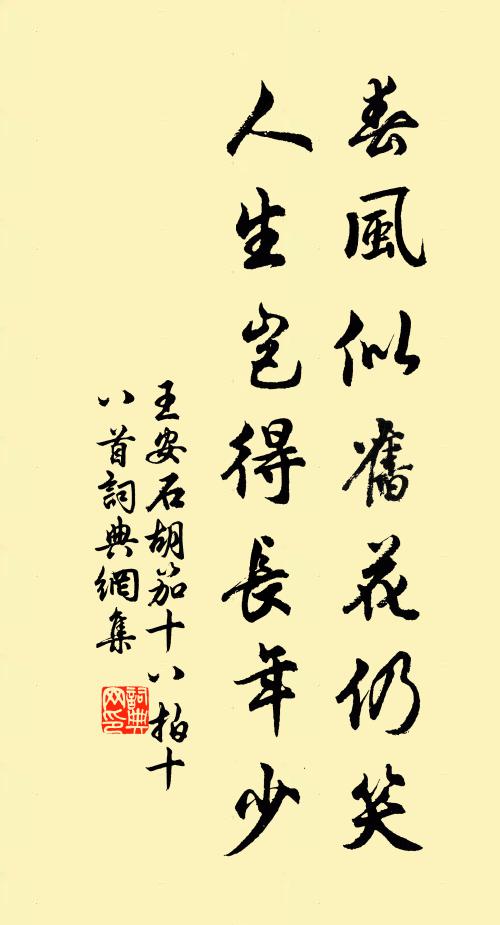 春風似舊花仍笑
人生豈得長年少
王安石胡笳十八拍十
八首詞典網集
詞典
网印